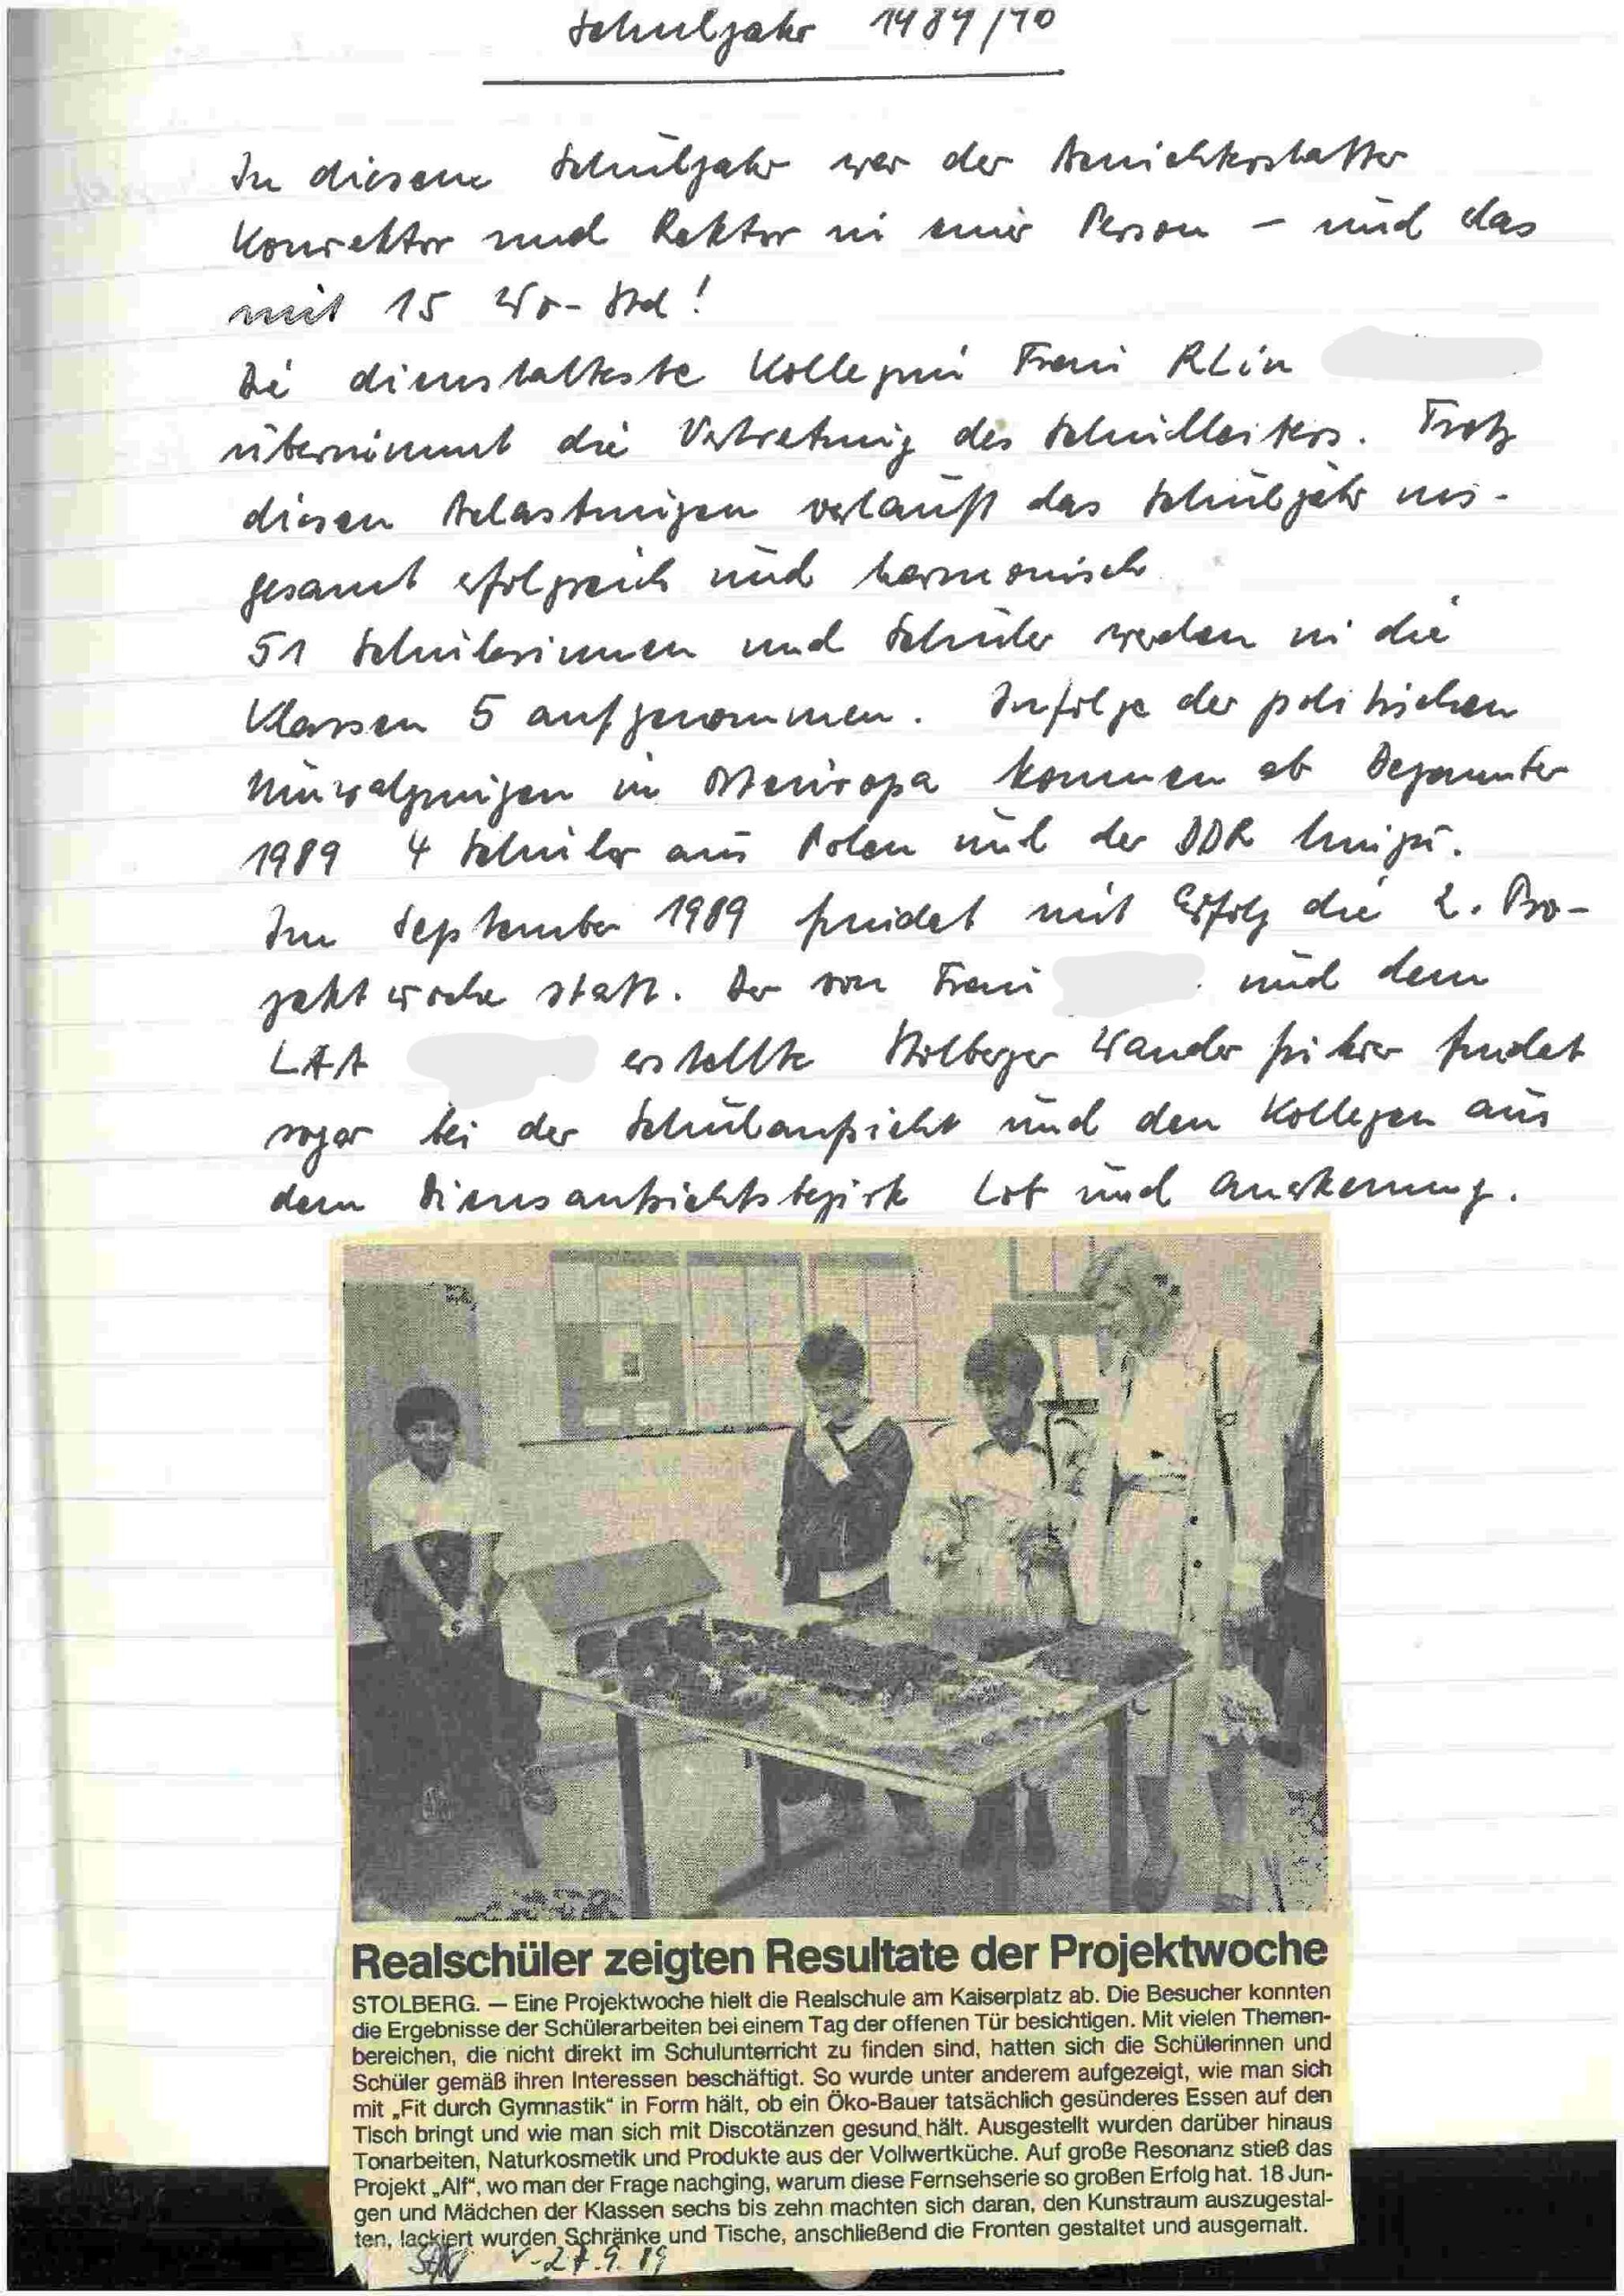 Schuljahr 1989/90
In diesem Schuljahr war der Berichterstatter
Konrektor und Rektor in einer Person – und das
mit 15 Wo-Std!
Die dienstälteste Kollegin Frau RLin
übernimmt die Vertretung des Schulleiters. Trotz
diesen Belastungen verläuft das Schuljahr ins-
gesamt erfolgreich und harmonisch
51 Schülerinnen und Schüler werden in die
Klassen 5 aufgenommen. Infolge der politischen
Umwälzungen in Osteuropa kommen ab Dezember
1989 4 Schüler aus Polen und der DDR hinzu.
Im September 1989 findet mit Erfolg die 2. Pro-
jektwoche statt. Der von Frau und dem
LAA erstellte Stolberger Wanderführer findet
sogar bei der Schulaufsicht und den Kollegen aus
dem Diensaufsichtsbezirk Lob und Anerkennung.
Realschüler zeigten Resultate der Projektwoche
STOLBERG. — Eine Projektwoche hielt die Realschule am Kaiserplatz ab. Die Besucher konnten
die Ergebnisse der Schülerarbeiten bei einem Tag der offenen Tür besichtigen. Mit vielen Themen-
bereichen, die nicht direkt im Schulunterricht zu finden sind, hatten sich die Schülerinnen und
Schüler gemäß ihren Interessen beschäftigt. So wurde unter anderem aufgezeigt, wie man sich
mit „Fit durch Gymnastik“ in Form hält, ob ein Öko-Bauer tatsächlich gesünderes Essen auf den
Tisch bringt und wie man sich mit Discotänzen gesund hält. Ausgestellt wurden darüber hinaus
Tonarbeiten, Naturkosmetik und Produkte aus der Vollwertküche. Auf große Resonanz stieß das
Projekt „Alf“, wo man der Frage nachging, warum diese Fernsehserie so großen Erfolg hat. 18 Jun-
gen und Mädchen der Klassen sechs bis zehn machten sich daran, den Kunstraum auszugestal-
ten, lackiert wurden Schränke und Tische, anschließend die Fronten gestaltet und ausgemalt.
v. 27.9.89